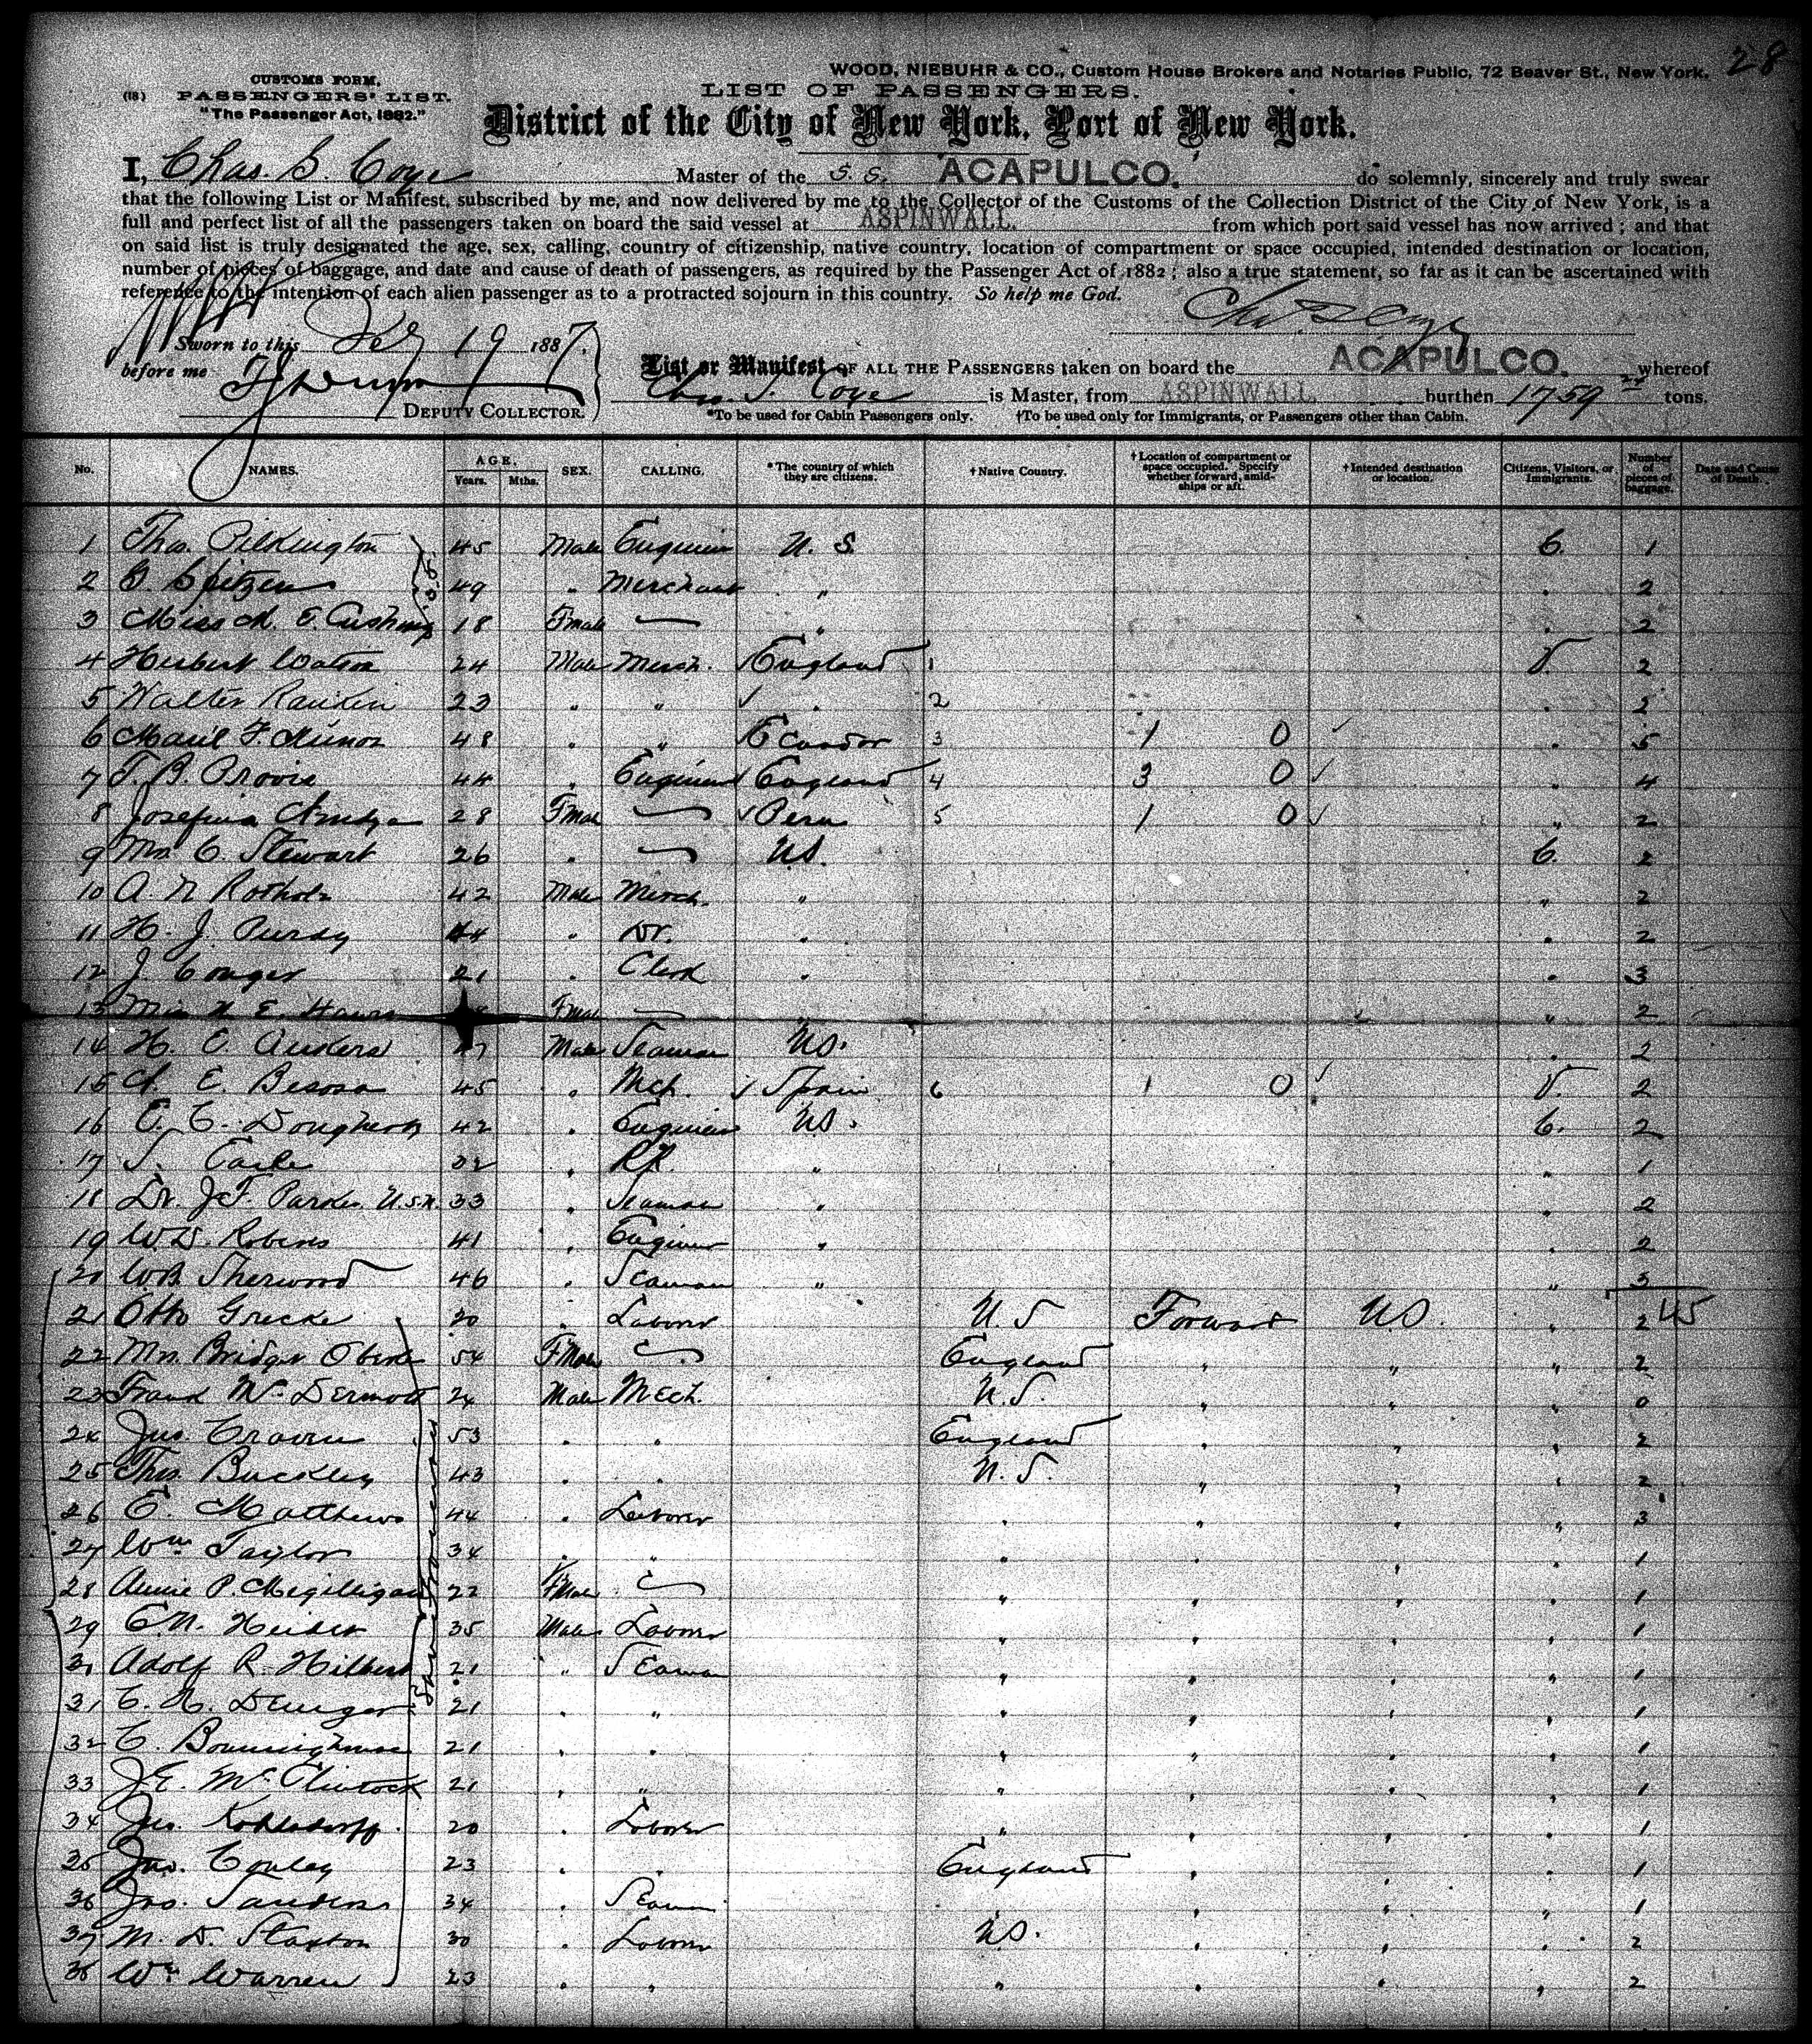 28
WOOD, NIEBUHR & CO., Custom House Brokers and Notaries Public, 72 Beaver St., New York.
CUSTOMS FORM.
(18) PASSENGERS' LIST.
"The Passenger Act, 1882."
LIST OF PASSENGERS.
District of the City of New York, Port of New York.
I, Chas. S. Coye Master of the S. S. ACAPULCO. do solemnly, sincerely and truly swear
that the following List or Manifest, subscribed by me, and now delivered by me to the Collector of the Customs of the Collection District of the City of New York, is a
full and perfect list of all the passengers taken on board the said vessel at ASPINWALL. from which port said vessel has now arrived; and that
on said list is truly designated the age, sex, calling, country of citizenship, native country, location of compartment or space occupied, intended destination or location,
number of pieces of baggage, and date and cause of death of passengers, as required by the Passenger Act of 1882; also a true statement, so far as it can be ascertained with
reference to the intention of each alien passenger as to a protracted sojourn in this country. So help me God.
Sworn to this Feby 19 1887.
before me
DEPUTY COLLECTOR.
List or Manifest OF ALL THE PASSENGERS taken on board the ACAPULCO. whereof
Chas. S. Coye is Master, from ASPINWALL burthen 1759 tons.
*To be used for Cabin Passengers only. †To be used only for Immigrants, or Passengers other than Cabin.
No. NAMES. AGE. Years. Mths. SEX. CALLING. *The country of which they are citizens. †Native Country. †Location of compartment or space occupied. Specify whether forward, amidships or aft. †Intended destination or location. Citizens, Visitors, or Immigrants. Number of pieces of baggage. Date and Cause of Death.
1 Thos. Pilkington 45 Male Enginier U. S. C. 1
2 G. Spitzen 49 " Merchant " " 2
3 Miss M. E. Cushing 18 Fmale — " " 2
4 Herbert Watson 24 Male Merch. England 1 V. 2
5 Walter Rankin 23 " " " 2 " 2
6 F. Nunoz 48 " " Ecuador 3 1 0 " 5
7 T. B. 44 " Enginier England 4 3 0 " 4
8 Josefina 28 Fmale — Peru 5 1 0 " 2
9 Mrs C. Stewart 26 " — US. C. 2
10 A. N. Rotholz 42 Male Merch. " " 2
11 H. J. Purdy 44 " Dr. " " 2
12 J. Conger 21 " Clerk " " 3
13 Miss N. E. Fmale — " " 2
14 H. E. Male Seaman US. " 2
15 E. Besosa 45 " Mch. Spain 6 1 0 V. 2
16 C. C. Dougherty 42 " Enginier US. C. 2
17 S. Earle 32 " RR. " " 1
18 Dr. J. F. Parker U.S.N. 33 " Seaman " " 2
19 W. D. Robins 41 " Enginer " " 2
20 W. B. Sherwood 46 " Seaman " " 3
45
21 Otto Grecke 20 " Laborer U. S Forward US. " 2
22 Mrs. Bridget 54 Fmale — England " " " 2
23 Frank McDermott 24 Male Mech. U. S. " " " 0
24 Jno. Craven 53 " " England " " " 2
25 Thos. Buckley 43 " " U. S. " " " 2
26 E. Matthews 44 " Laborer " " " " 3
27 Wm Taylor 34 " " " " " " 1
28 Annie P. Megilligan 22 Fmale — " " " " 1
29 C. N. 35 Male Laborer " " " " 1
30 Adolf R. Hilbert 21 " Seaman " " " " 1
31 C. 21 " " " " " " 1
32 C. 21 " " " " " " 1
33 J. E. McClintock 21 " " " " " " 1
34 Kohlsdorff 20 " Laborer " " " " 1
35 Jno. Conley 23 " " England " " " 1
36 Jno. Sanders 34 " Seaman " " " " 1
37 M. D. Staxton 30 " Laborer US. " " " 2
38 Wm Warren 23 " " " " " " 2